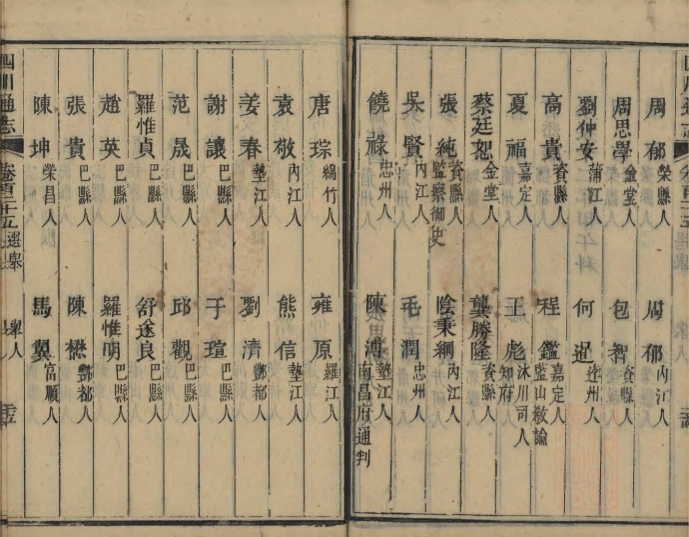 周郁 榮縣人 周郁 內江人
周思學 金堂人 包智 資縣人
劉仲安 蒲江人 何暹
高貴 資縣人 程鑑 嘉定人 藍山敎諭
夏福 嘉定人 王彪 知府
蔡廷恕 金堂人 龔勝隆 資縣人
張純 資縣人 監察御史 陰秉綱 內江人
吳賢 內江人 毛潤 忠州人
饒祿 忠州人 陳溥 墊江人 南昌府通判
唐琮 綿竹人 雍原 羅江人
袁敬 內江人 熊信 墊江人
姜春 墊江人 劉濟 酆都人
謝讓 巴縣人 于瑄 巴縣人
范晟 巴縣人 邱觀 巴縣人
羅惟貞 巴縣人 舒遂良 巴縣人
趙英 巴縣人 羅惟明 巴縣人
張貴 巴縣人 陳懋 酆都人
陳坤 榮昌人 馬翼 富順人
四川通志 卷百二十五 選舉 舉人